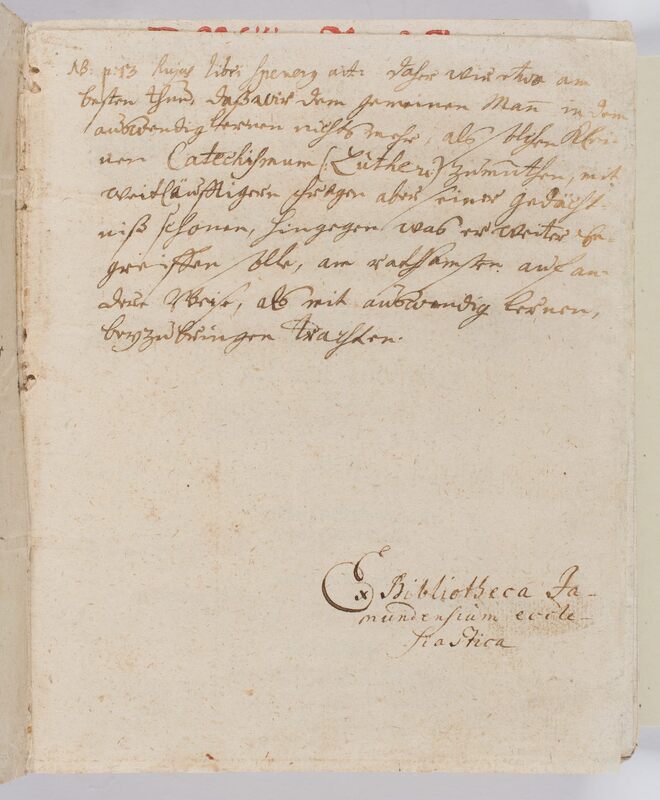 NB. p. 53 hujus libri Spenerg ait: daher wir etwa am
besten thun, daß wir dem gemeinen Mann in dem
auswendig lernen nichts mehr, als solchen Klei-
nen Catechismum (: Lutheri :) zumuthen, mit
weitläufftigern fragen aber seiner Gedächt-
niß schonen, hingegen was er weiter be-
greiffen solle, am rathsamsten auf an-
dere Weise, als mit auswendig lernen,
beyzubringen trachten.
Ex Bibliotheca Ja-
mundensium eccle-
siastica